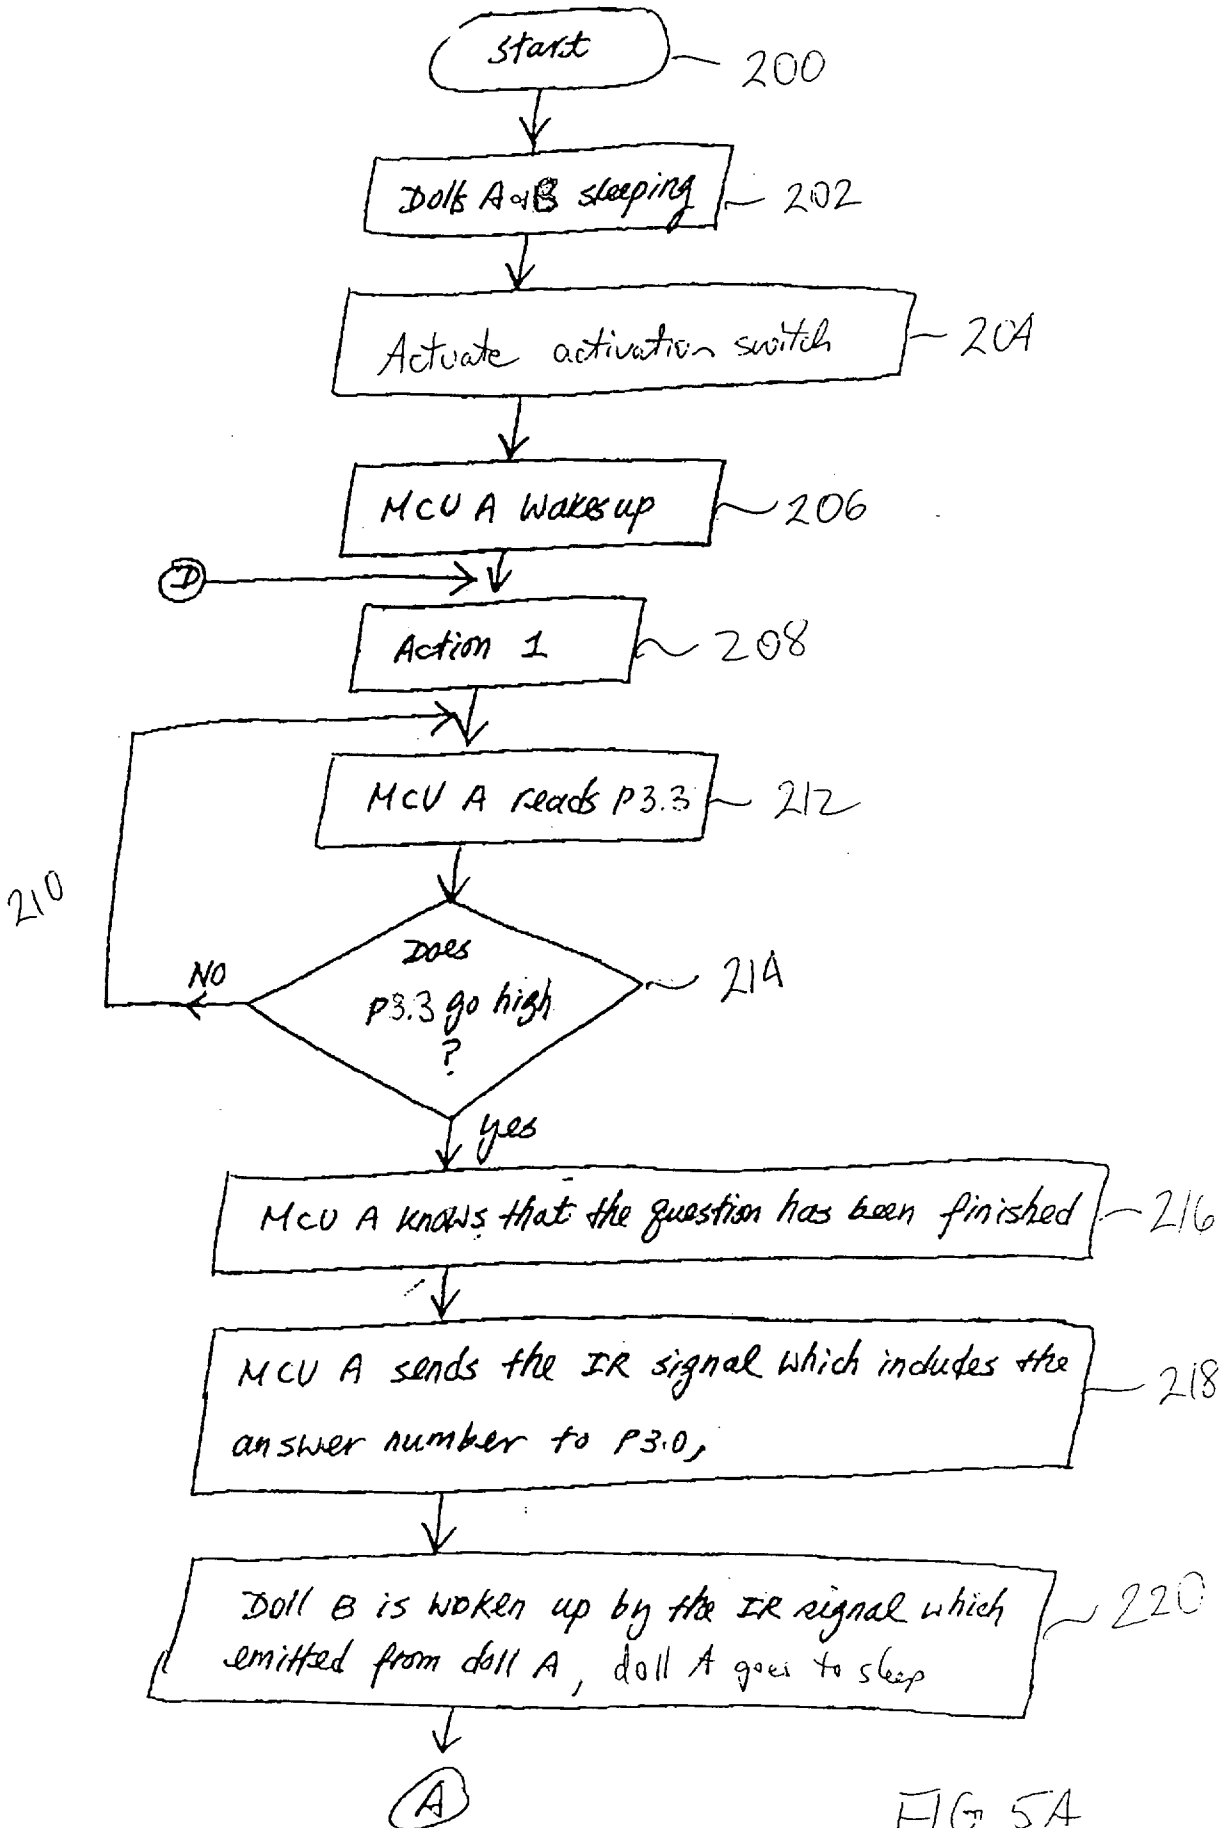 start
200
Dolls A&B sleeping
202
Actuate activation switch
204
MCU A wakes up
206
D
Action 1
208
MCU A reads P3.3
212
210
Does
P3.3 go high
?
214
NO
yes
MCU A knows that the question has been finished
216
MCU A sends the IR signal which includes the
answer number to P3.0,
218
Doll B is woken up by the IR signal which
emitted from doll A, doll A goes to sleep
220
A
FIG 5A